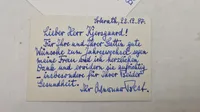 Erkrath, 22.12.87.
Lieber Herr Kjersgaard!
Für Ihre und Ihrer Gattin gute
Wünsche zum Jahreswechsel sagen
meine Frau und ich herzlichen
Dank und erwidern sie aufrichtig
- insbesondere für Ihre Beider
Gesundheit.
Ihr